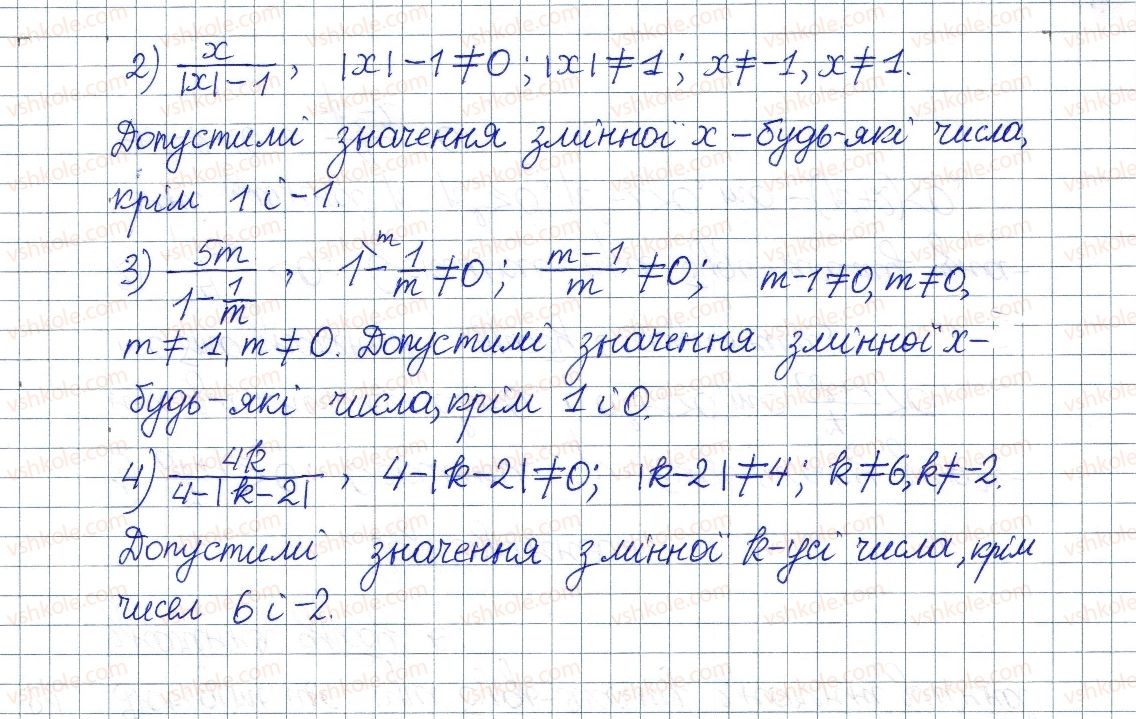 2) x/(|x|-1), |x|-1≠0; |x|≠1; x≠-1, x≠1.
Допустимі значення змінної x – будь-які числа,
крім 1 і -1.
3) 5m/(1-1/m), 1^m-1/m≠0; (m-1)/m≠0; m-1≠0, m≠0,
m≠1, m≠0. Допустимі значення змінної x –
будь-які числа, крім 1 і 0.
4) 4k/(4-|k-2|), 4-|k-2|≠0; |k-2|≠4; k≠6, k≠-2.
Допустимі значення змінної k – усі числа, крім
чисел 6 і -2.
vshkole.com